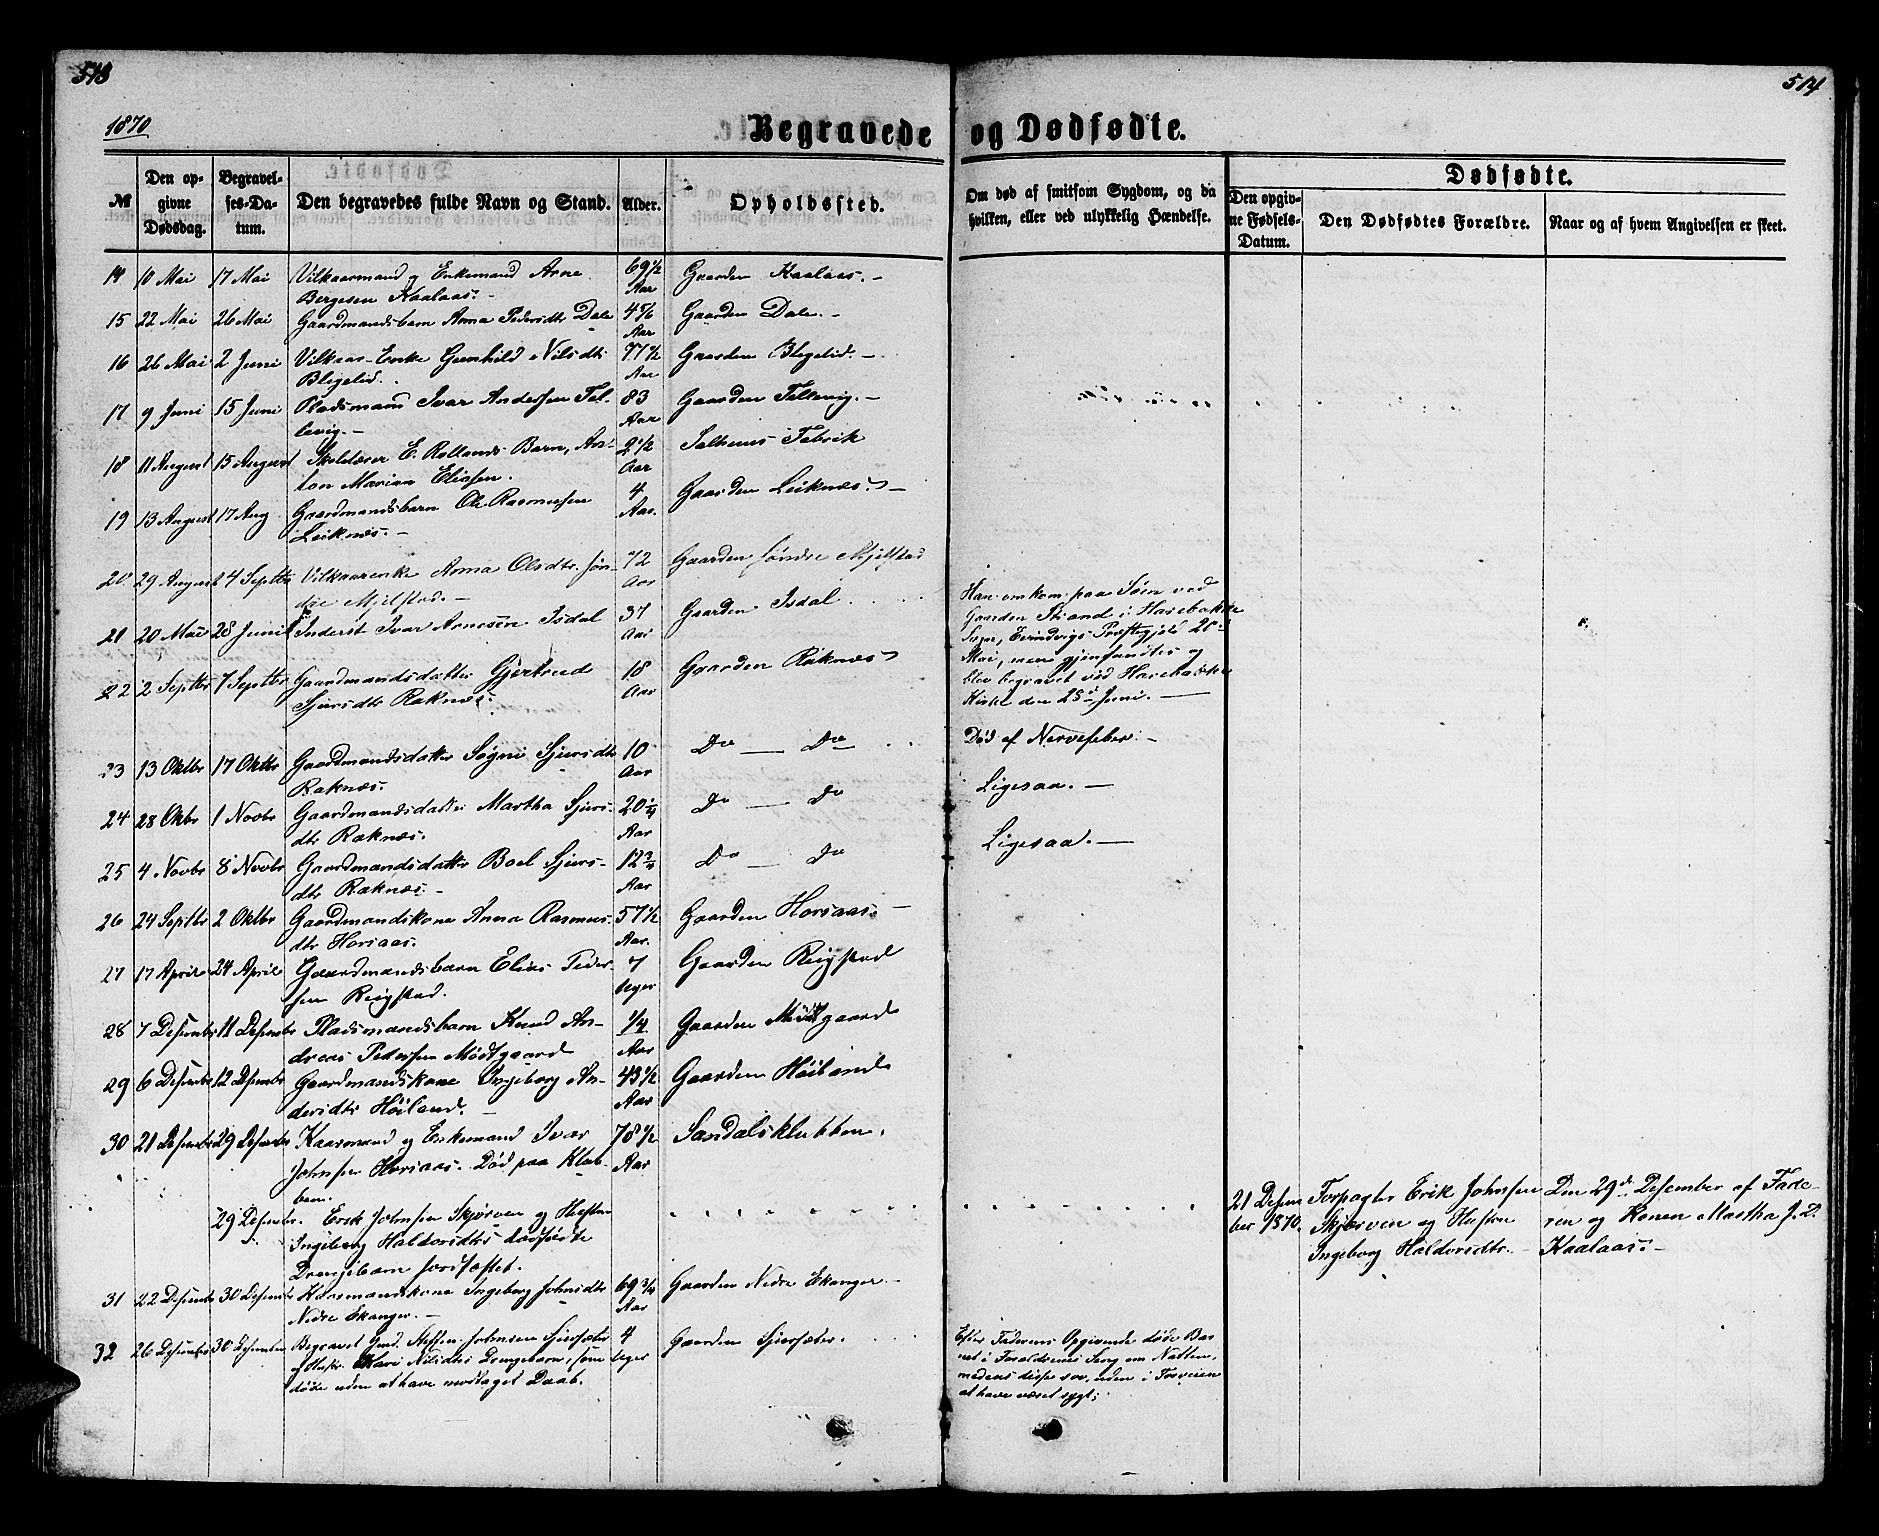 513
514
1870
Begravede og Dødfødte.
№
Den opgivne Dødsdag.
Begravelses-Datum.
Den begravedes fulde Navn og Stand.
Alder.
Opholdssted.
Om død af smitsom Sygdom, og da hvilken, eller ved ulykkelig Hændelse.
Dødfødte.
Den opgivne Fødsels-Datum.
Den Dødfødtes Forældre.
Naar og af hvem Angivelsen er skeet.
14 10 Mai 17 Mai Vilkaarmand og Enkemand Arne 69½ Gaarden Kaalaas.-
Bergesen Kaalaas.- Aar
15 22 Mai 26 Mai Gaardmandsbarn Anna Pedersdtr Dale 4 5/6 Gaarden Dale.-
Aar
16 26 Mai 2 Juni Vilkaars-Enke Gunhild Nilsdtr 77½ Gaarden Blegelid.-
Bligelid. Aar
17 9 Juni 15 Juni Pladsmand Ivar Andersen Tel- 83 Gaarden Tellevig.-
levig.- Aar
18 11 August 15 August Skolelærer E. Rollands Barn, An- 2½ Salhuus Fabrik
ton Marius Eliasen. Aar
19 13 August 17 Aug Gaardmandsbarn Ole Rasmussen 4 Gaarden Leiknæs.-
Leiknæs.- Aar.
20 29 August 4 Septbr Vilkaarenke Anna Olsdtr. søn- 72 Gaarden søndre Mjelstad
dre Mjelstad.- Aar
21 20 Mai 28 Juni Inderst Ivar Arnesen Isdal 37 Gaarden Isdal
Aar
Han omkom paa Søen ved
Gaarden Strand i Harebakke
Sogn, Evindvigs Præstegjeld 20de
Mai, men gjenfandtes og
blev begravet ved Harebakke
Kirke den 28de Juni.-
22 2 Septbr 7 Septbr Gaardmandsdatter Gjertrud 18 Gaarden Raknæs
Sjursdtr Raknæs. Aar
Død af Nervefeber.-
23 13 Oktbr 17 Oktbr Gaardmandsdatter Søgni Sjursdtr 10 Do - Do
Raknæs. Aar
Ligesaa.-
24 28 Okbr 1 Novbr Gaardmandsdatter Martha Sjurs- 20¼ Do - Do
dtr Raknæs. Aar
Ligesaa.-
25 4 Novbr 8 Novbr Gaardmandsdatter Boel Sjurs- 12¾ Do - Do
dtr Raknæs.- Aar
26 24 Septbr 2 Oktbr Gaardmandskone Anna Rasmus- 57½ Gaarden Horsaas.-
dtr Horsaas. Aar.
27 17 April 24 April Gaardmandsbarn Elias Peder- 7 Gaarden Reigstad
sen Reigstad. Uger
28 7 Desember 11 Desember Pladsmandsbarn Knud An- 1/4 Gaarden Mødtgaard
dreas Pedersen Mødtgaard Aar
29 6 Desember 12 Desember Gaardmandskone Ingeborg An- 43½ Gaarden Høiland
dersdtr Høiland.- Aar
30 21 Desember 29 Desember Kaarmand og Enkemand Ivar 78½ Sandalsklubben.
Johnsen Horsaas. Død paa Klub- Aar
ben.
29 Desember. Erik Johnsen Skjørven og Hustru
Ingeborg Haldorsdtrs dødfødte
Drengebarn jordfæstet.
21 Desem- Forpagter Erik Johnsen Den 29de Desember af Fade-
ber 1870. Skjørven og Hustru ren og Konen Martha J. D.
Ingeborg Haldorsdtr.- Kaalaas.-
31 22 Desember 30 Desember Kaarmandskone Ingeborg Johnsdtr 69¾ Gaarden Nedre Ekanger.-
Nedre Ekanger.- Aar
32 26 Desember 30 Desember Begravet Gmd. Steffen Johnsen Sjursæter 4 Gaarden Sjursæter.
og Hustr. Kari Nilsdtrs Drengebarn, som Uger
døde uden at have modtaget Daab.
Efter Faderens Opgivende døde Bar-
net i Forældrenes Seng om Natten,
medens disse sov, uden i Forveien
at have været sygt;